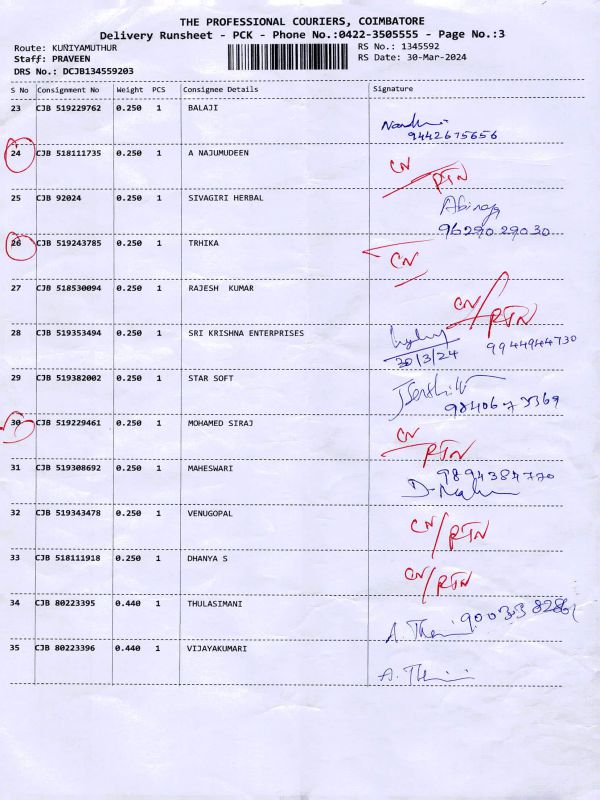 THE PROFESSIONAL COURIERS, COIMBATORE
Delivery Runsheet - PCK - Phone No.:0422-3505555 - Page No.:3
Route: KUNIYAMUTHUR RS No.: 1345592
Staff: PRAVEEN RS Date: 30-Mar-2024
DRS No.: DCJB134559203
S No Consignment No Weight PCS Consignee Details Signature
23 CJB 519229762 0.250 1 BALAJI
9442675656
24 CJB 518111735 0.250 1 A NAJUMUDEEN CN
RTN
25 CJB 92024 0.250 1 SIVAGIRI HERBAL
96290 29030
26 CJB 519243785 0.250 1 TRHIKA CN
27 CJB 518530094 0.250 1 RAJESH KUMAR CN/RTN
28 CJB 519353494 0.250 1 SRI KRISHNA ENTERPRISES
9944944730
30/3/24
29 CJB 519382002 0.250 1 STAR SOFT
30 CJB 519229461 0.250 1 MOHAMED SIRAJ CN
RTN
31 CJB 519308692 0.250 1 MAHESWARI 9894384770
32 CJB 519343478 0.250 1 VENUGOPAL CN/RTN
33 CJB 518111918 0.250 1 DHANYA S CN/RTN
34 CJB 80223395 0.440 1 THULASIMANI
35 CJB 80223396 0.440 1 VIJAYAKUMARI